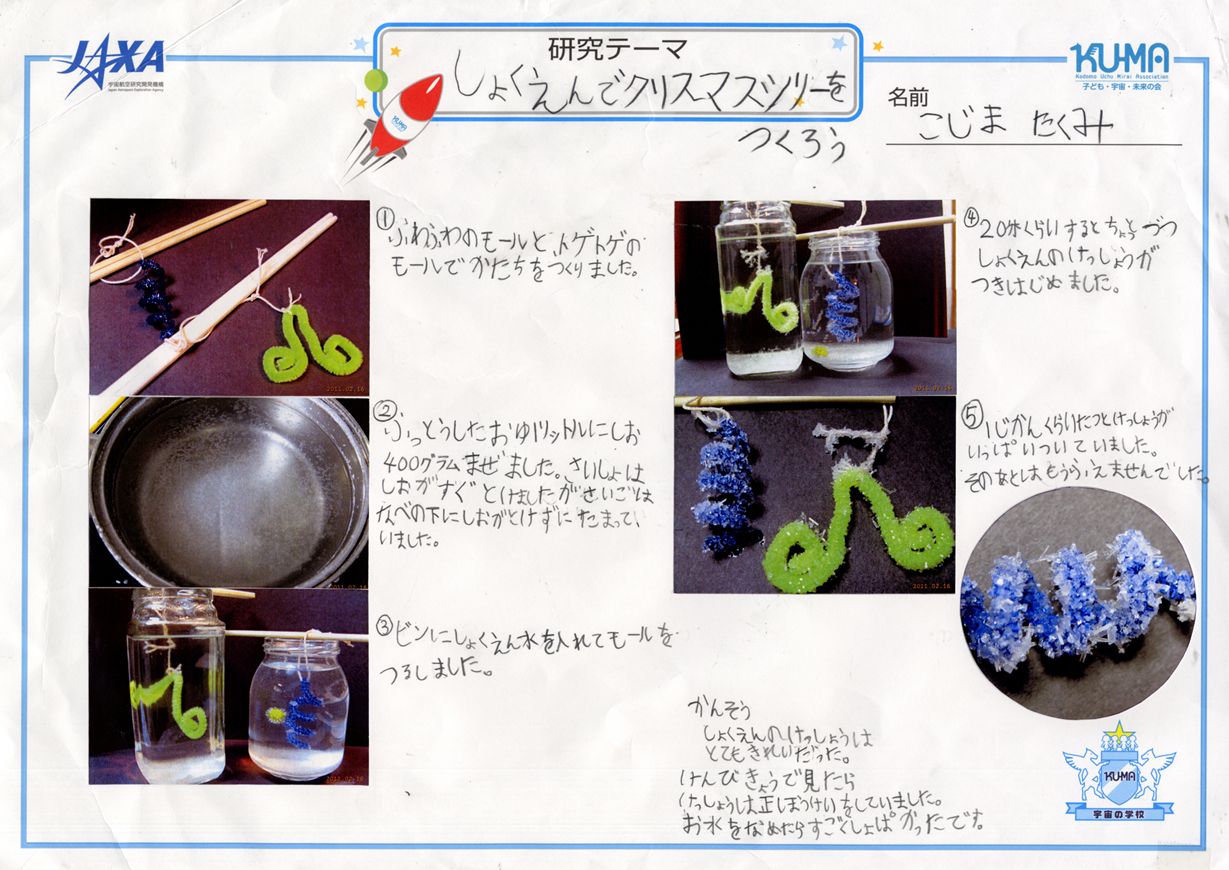 JAXA
宇宙航空研究開発機構
Japan Aerospace Exploration Agency
研究テーマ
しょくえんでクリスマスツリーを
つくろう
KUMA
KU-MA
Kodomo Uchu Mirai Association
子ども・宇宙・未来の会
名前
こじま たくみ
①ふわふわのモールと、トゲトゲの
モールでかたちをつくりました。
2011.02.16
②ふっとうしたおゆ1リットルにしお
400グラムまぜました。さいしょは
しおがすぐとけましたがさいごは
なべの下にしおがとけずにたまって、
いました。
2011.02.16
③ビンにしょくえん水を入れてモールを
つるしました。
2011.02.16
④20分くらいするとちょっとづつ
しょくえんのけっしょうが
つきはじめました。
2011.02.16
⑤1じかんくらいたつとけっしょうが
いっぱいついていました。
そのあとはもうふえませんでした。
2011.02.16
かんそう
しょくえんのけっしょうは
とてもきれいだった。
けんびきょうで見たら
けっしょうは正ほうけいをしていました。
お水をなめたらすごくしょぱかったです。
KU-MA
宇宙の学校